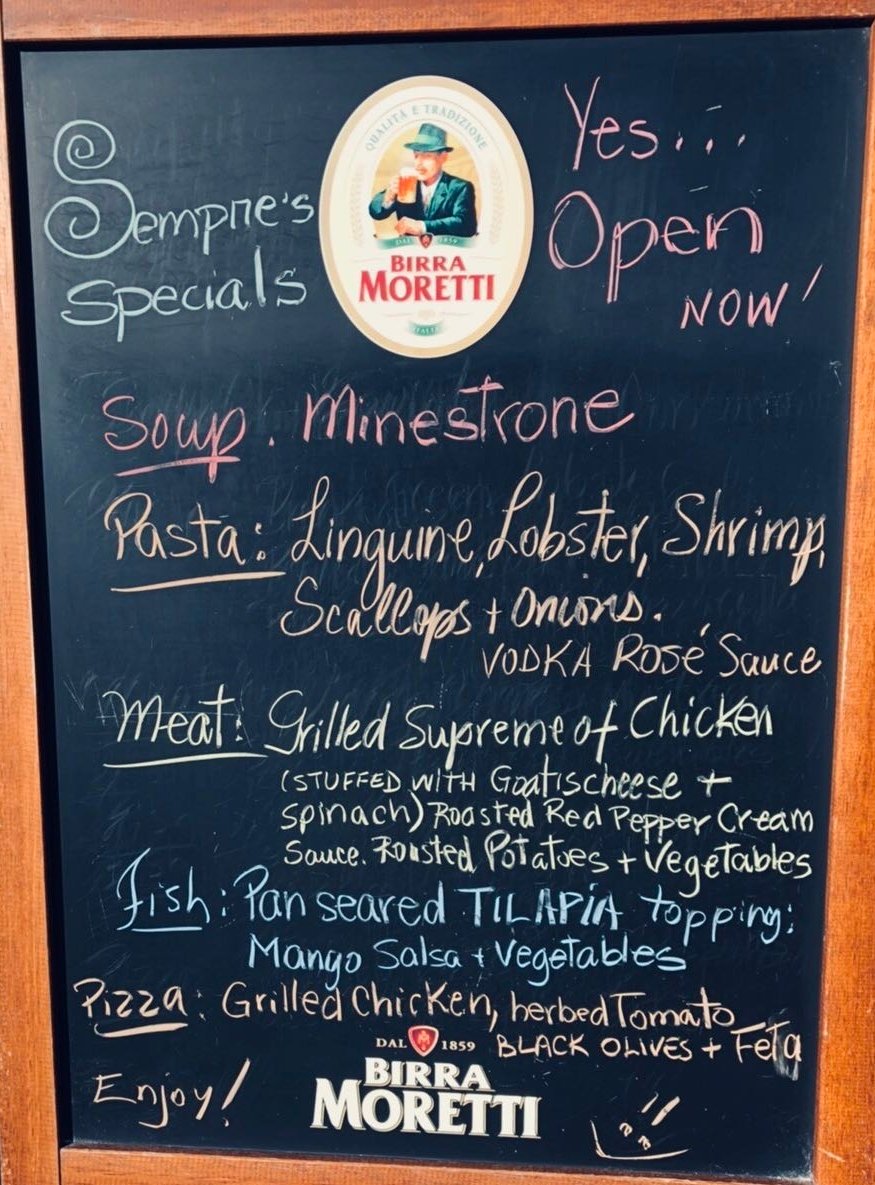 Sempre's
Specials
QUALITÀ E TRADIZIONE
DAL 1859
BIRRA
MORETTI
ITALIA
Yes...
Open
NOW!
Soup. Minestrone
Pasta: Linguine, Lobster, Shrimp,
Scallops + Onions.
VODKA Rosé Sauce
Meat: Grilled Supreme of Chicken
(STUFFED WITH Goatischeese +
Spinach) Roasted Red Pepper Cream
Sauce. Roasted Potatoes + Vegetables
Fish: Pan seared TILAPIA topping:
Mango Salsa + Vegetables
Pizza: Grilled Chicken, herbed Tomato
BLACK OLIVES + Feta
DAL 1859
BIRRA
MORETTI
Enjoy!